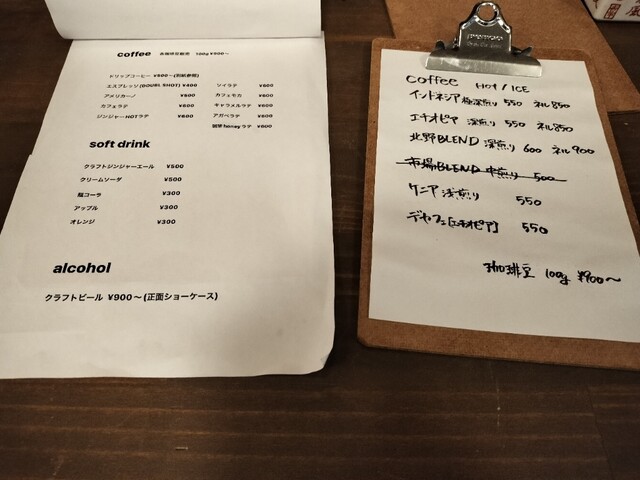 coffee 各種珈琲豆販売 100g ¥900〜
ドリップコーヒー ¥500〜(別紙参照)
エスプレッソ(DOUBL SHOT) ¥400
アメリカーノ ¥500
カフェラテ ¥600
ジンジャーHOTラテ ¥600
ソイラテ ¥600
カフェモカ ¥600
キャラメルラテ ¥600
アガベラテ ¥600
honeyラテ ¥600
soft drink
クラフトジンジャーエール ¥500
クリームソーダ ¥500
瓶コーラ ¥300
アップル ¥300
オレンジ ¥300
alcohol
クラフトビール ¥900〜(正面ショーケース)
coffee HOT / ICE
インドネシア 極深煎り 550 ネル850
エチオピア 深煎り 550 ネル850
北野BLEND 深煎り 600 ネル900
市場BLEND 中煎り 500
ケニア 浅煎り 550
デカフェ[エチオピア] 550
珈琲豆 100g ¥900〜